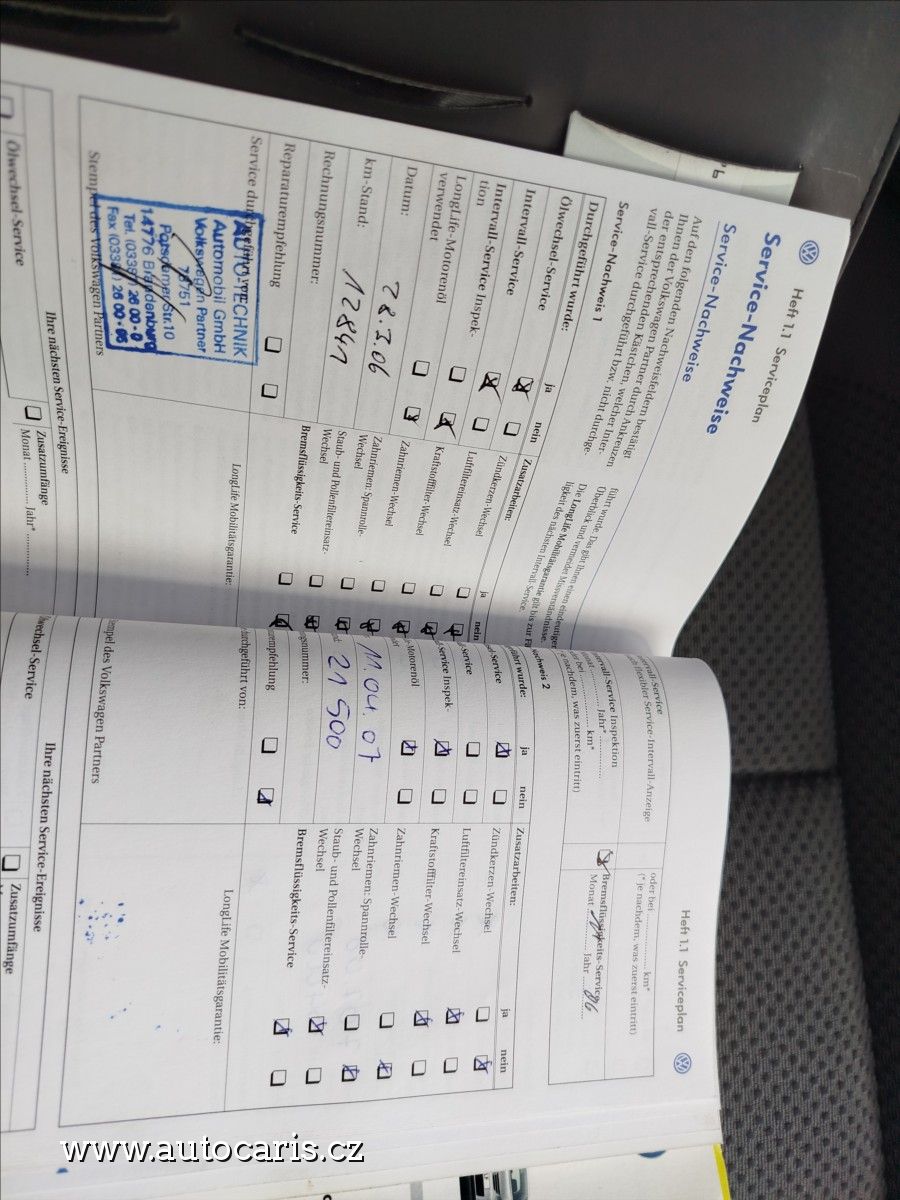 Heft 1.1 Serviceplan
Service-Nachweise
Service-Nachweise
Auf den folgenden Nachweisfeldern bestätigt
Ihnen der Volkswagen Partner durch Ankreuzen
der entsprechenden Kästchen, welcher Inter-
vall-Service durchgeführt bzw. nicht durchge-
führt wurde. Das gibt Ihnen einen eindeutigen
Überblick und vermeidet Missverständnisse.
Die LongLife Mobilitätsgarantie gilt bis zur Fä
ligkeit des nächsten Intervall-Service.
Service-Nachweis 1
Durchgeführt wurde:
ja
nein
Ölwechsel-Service
Intervall-Service
Intervall-Service Inspek-
tion
LongLife-Motorenöl
verwendet
Datum:
28.3.06
km-Stand:
12841
Rechnungsnummer:
Reparaturempfehlung
Service durchgeführt von:
AUTOTECHNIK
Automobil GmbH
Volkswagen Partner
Potsdamer Str.10
14776 Brandenburg
Stempel des Volkswagen Partners
Zusatzarbeiten:
ja
nein
Zündkerzen-Wechsel
Luftfiltereinsatz-Wechsel
Kraftstofffilter-Wechsel
Zahnriemen-Wechsel
Zahnriemen: Spannrolle-
Wechsel
Staub- und Pollenfiltereinsatz-
Wechsel
Bremsflüssigkeits-Service
LongLife Mobilitätsgarantie:
Ihre nächsten Service-Ereignisse
Ölwechsel-Service
Zusatzumfänge
Monat ............ Jahr* ............
Heft 1.1 Serviceplan
ervall-Service
flexibler Service-Intervall-Anzeige
ervall-Service Inspektion
Jahr*
km*
nachdem, was zuerst eintritt)
oder bei ............ km*
(* je nachdem, was zuerst eintritt)
Bremsflüssigkeits-Service
Monat ............ Jahr 06
achweis 2
führt wurde:
ja
nein
el-Service
Service
Service Inspek-
Motorenöl
11.04.07
21500
gsnummer:
urempfehlung
durchgeführt von:
empel des Volkswagen Partners
Zusatzarbeiten:
ja
nein
Zündkerzen-Wechsel
Luftfiltereinsatz-Wechsel
Kraftstofffilter-Wechsel
Zahnriemen-Wechsel
Zahnriemen: Spannrolle-
Wechsel
Staub- und Pollenfiltereinsatz-
Wechsel
Bremsflüssigkeits-Service
LongLife Mobilitätsgarantie:
Ihre nächsten Service-Ereignisse
wechsel-Service
Zusatzumfänge
www.autocaris.cz